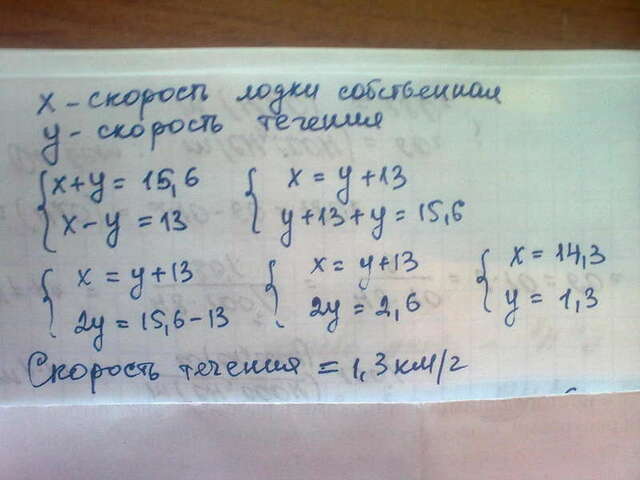 x - скорость лодки собственная
y - скорость течения
{ x + y = 15,6 { x = y + 13
x - y = 13 y + 13 + y = 15,6
{ x = y + 13 { x = y + 13 { x = 14,3
2y = 15,6 - 13 2y = 2,6 y = 1,3
Скорость течения = 1,3 км/г